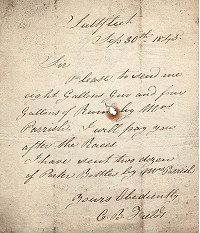 Sir
Please to send me
eight Gallons Gin and five
Gallons of Rum by Mrs
Parrish. I will pay you
after the Races
I have sent two dozen
of Porter Bottles by Mrs Parrish
Yours Obediently
C. B. Fields